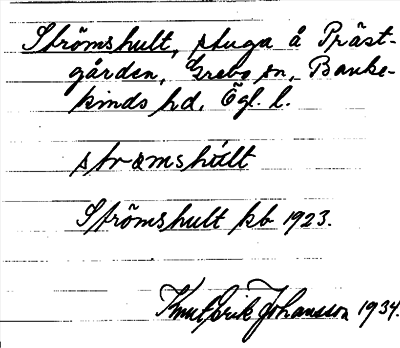 Strömshult, stuga å Präst-
gården, Grebo sn, Banke-
kinds hd. Ögl. l.
strömshúlt
Strömshult kb 1923.
Knut Erik Johansson 1934.